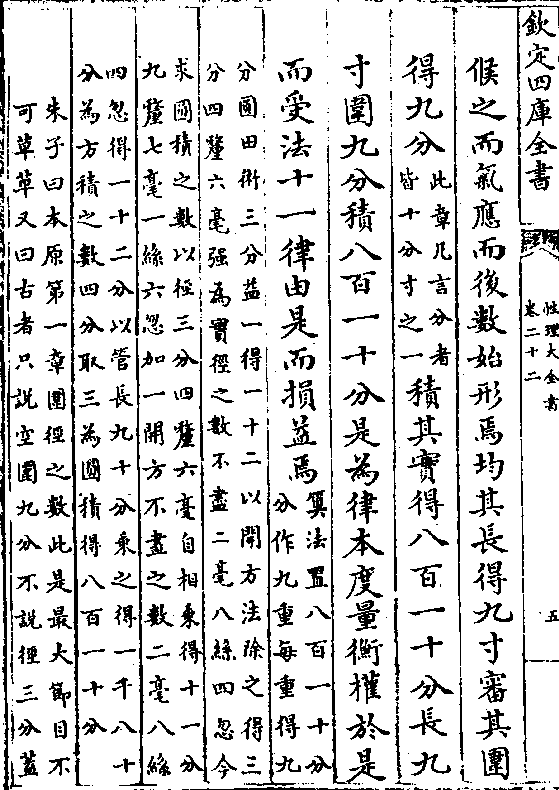 欽定四庫全書
性理大全書
卷二十二
五
候之而氣應而後數始形焉均其長得九寸審其圍
得九分此章凡言分者
皆十分寸之一積其實得八百一十分長九
寸圍九分積八百一十分是為律本度量衡權於是
而受法十一律由是而損益焉算法置八百一十分
分作九重每重得九
分圓田術三分益一得一十二以開方法除之得三
分四釐六毫强為實徑之數不盡二毫八絲四忽今
求圓積之數以徑三分四釐六毫自相乗得十一分
九釐七毫一絲六忽加一開方不盡之數二毫八絲
四忽得一十二分以管長九十分乗之得一千八十
分為方積之數四分取三為圓積得八百一十分
朱子曰本原第一章圍徑之數此是最大節目不
可草草又曰古者只説空圍九分不説徑三分蓋